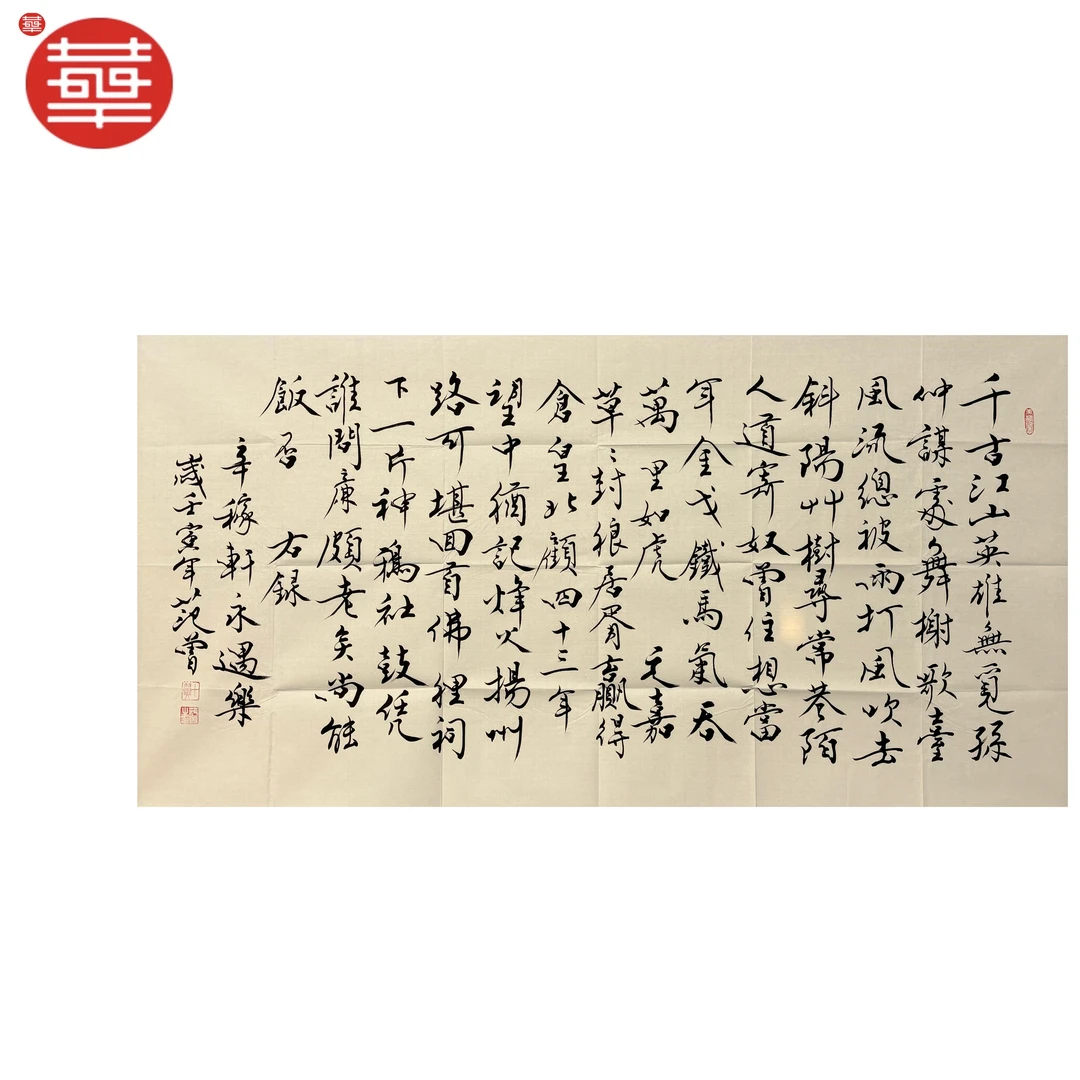 華
千古江山英雄無覓孫
仲謀處舞榭歌臺
風流總被雨打風吹去
斜陽艸樹尋常巷陌
人道寄奴曾住想當
年金戈鐵馬氣吞
萬里如虎元嘉
草〻封狼居胥贏得
倉皇北顧四十三年
望中猶記烽火揚州
路可堪回首佛狸祠
下一片神鴉社鼓凭
誰問廉頗老矣尚能
飯否 右録
辛稼軒永遇樂
歲壬寅年范曾